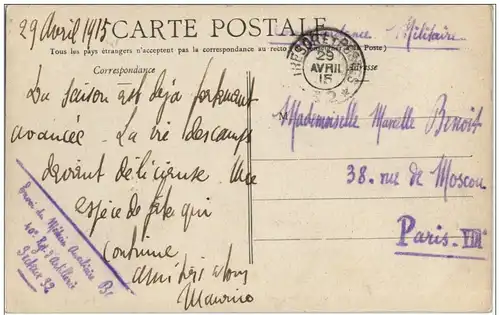 29 Avril 1915
CARTE POSTALE
Correspondance Militaire
Tous les pays étrangers n'acceptent pas la correspondance au recto Poste)
Correspondance
Adresse
TRESOR ET POSTES
29
AVRIL
15
* 2 *
La saison est déja fortement
avancée. La vie des camps
devient délicieuse. Une
espèce de fête qui
continue
Amitiés à tous
Maurice
Mademoiselle Marcelle Benoit
38. rue de Moscou
Paris. VIII
Envoi du Médecin Auxiliaire
Rgt d'Artillerie
Secteur 32